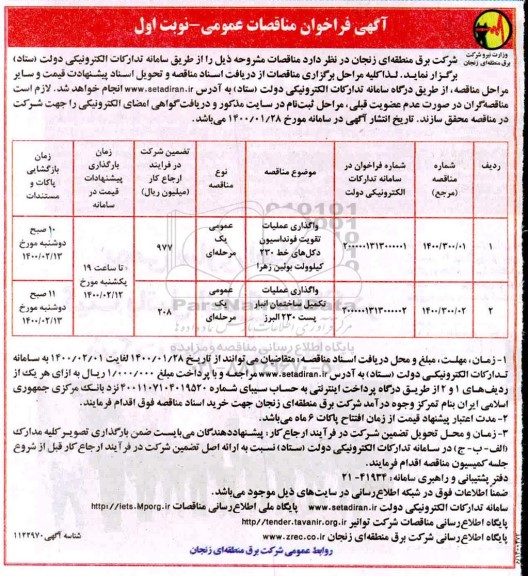 آگهی فراخوان مناقصات عمومی-نوبت اول
وزارت نیرو شرکت
برق منطقه‌ای زنجان
شرکت برق منطقه‌ای زنجان در نظر دارد مناقصات مشروحه ذیل را از طریق سامانه تدارکات الکترونیکی دولت (ستاد)
برگزار نماید. لذا کلیه مراحل برگزاری مناقصات از دریافت اسناد مناقصه و تحویل اسناد پیشنهادت قیمت و سایر
مراحل مناقصه، از طریق درگاه سامانه تدارکات الکترونیکی دولت (ستاد) به آدرس www.setadiran.ir انجام خواهد شد. لازم است
مناقصه‌گران در صورت عدم عضویت قبلی، مراحل ثبت‌نام در سایت مذکور و دریافت گواهی امضای الکترونیکی را جهت شرکت
در مناقصه محقق سازند. تاریخ انتشار آگهی در سامانه مورخ ۱۴۰۰/۰۱/۲۸ می‌باشد.
ردیف
شماره مناقصه (مرجع)
شماره فراخوان در سامانه تدارکات الکترونیکی دولت
موضوع مناقصه
نوع مناقصه
تضمین شرکت در فرایند ارجاع کار (میلیون ریال)
زمان بارگذاری پیشنهادات قیمت در سامانه
زمان بازگشایی پاکات و مستندات
۱
۱۴۰۰/۳۰۰/۰۱
۲۰۰۰۰۰۱۳۱۳۰۰۰۰۰۱
واگذاری عملیات تقویت فونداسیون دکل‌های خط ۲۳۰ کیلوولت بوئین زهرا
عمومی یک مرحله‌ای
۹۷۷
تا ساعت ۱۹ یکشنبه مورخ ۱۴۰۰/۰۲/۱۲
۱۰ صبح دوشنبه مورخ ۱۴۰۰/۰۲/۱۳
۲
۱۴۰۰/۳۰۰/۰۲
۲۰۰۰۰۰۱۳۱۳۰۰۰۰۰۲
واگذاری عملیات تکمیل ساختمان انبار پست ۲۳۰ البرز
عمومی یک مرحله‌ای
۲۰۸
۱۱ صبح دوشنبه مورخ ۱۴۰۰/۰۲/۱۳
۱- زمان، مهلت، مبلغ و محل دریافت اسناد مناقصه: متقاضیان می‌توانند از تاریخ ۱۴۰۰/۰۱/۲۸ لغایت ۱۴۰۰/۰۲/۰۱ به سامانه
تدارکات الکترونیکی دولت (ستاد) به آدرس www.setadiran.ir مراجعه و با پرداخت مبلغ ۱/۰۰۰/۰۰۰ ریال به ازای هر یک از
ردیف‌های ۱ و ۲ از طریق درگاه پرداخت اینترنتی به حساب سیبای شماره ۴۰۰۱۱۰۷۱۰۴۰۱۹۵۲۰ نزد بانک مرکزی جمهوری
اسلامی ایران بنام تمرکز وجوه درآمد شرکت برق منطقه‌ای زنجان جهت خرید اسناد مناقصه فوق اقدام فرمایند.
۲- مدت اعتبار پیشنهاد قیمت از زمان افتتاح پاکات ۶ ماه می‌باشد.
۳- زمان و محل تحویل تضمین شرکت در فرآیند ارجاع کار: پیشنهاددهندگان می‌بایست ضمن بارگذاری تصویر کلیه مدارک
(الف-ب-ج) در سامانه تدارکات الکترونیکی دولت (ستاد) نسبت به ارائه اصل تضمین شرکت در فرآیند ارجاع کار قبل از شروع
جلسه کمیسیون مناقصه اقدام فرمایند.
دفتر پشتیبانی و راهبری سامانه: ۴۱۹۳۴-۰۲۱
ضمنا اطلاعات فوق در شبکه اطلاع‌رسانی در سایت‌های ذیل موجود می‌باشد.
سامانه تدارکات الکترونیکی دولت www.setadiran.ir پایگاه ملی اطلاع‌رسانی مناقصات http://iets.Mporg.ir
پایگاه اطلاع‌رسانی مناقصات شرکت توانیر http//tender.tavanir.org.ir
پایگاه اطلاع‌رسانی شرکت برق منطقه‌ای زنجان www.zrec.co.ir
شناسه آگهی: ۱۱۲۲۹۷۰
روابط عمومی شرکت برق منطقه‌ای زنجان